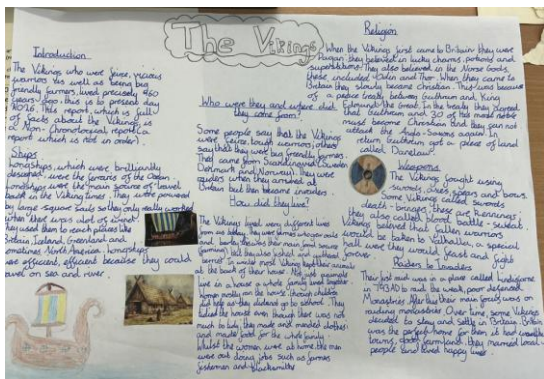 The Vikings
Introduction
The Vikings, who were fierce, vicious
warriors as well as being
friendly farmers, lived precisely
years ago, this is to present day
This report, which is full
of facts about the Vikings, is
a Non-Chronological report (a
report which is not in order).
Ships
Longships, which were brilliantly
designed, were the of the Ocean
Longships were the main source of travel
back in the Viking times. They were powered
by large square sails so they only really worked
when there was a lot of wind.
They used them to reach places like
Britain, Iceland, Greenland and
sometimes North America. Longships
were efficient, efficient because they could
travel on sea and river.
Who were they and where did
they come from?
Some people say that the Vikings
were fierce, tough warriors, others
say that they were friendly farmers.
They came from Scandinavia (Sweden
Denmark and Norway). They were
raiders when they arrived at
Britain but then became invaders.
How did they live?
The Vikings lived very different lives
from us today. They were farmers who grew
and barley. this was their main food source
(farming) but they also fished and
berries. Vikings kept their animals
at the back of their house. Not just
live in a house a whole family lived together.
women mostly ran the house, though children
did help as they didn't go to school. They
the house even though there was not
much to tidy, they made and mended clothes
and made food for the whole family.
Whilst the women were at home, the men
were out doing jobs such as farmers
fishermen and blacksmiths
Religion
When the Vikings first came to Britain they were
Pagan, they believed in lucky charms, potions and
superstitions. They also believed in the Norse Gods,
these included Odin and Thor. When they came to
Britain they slowly became Christian. This was because
of a peace treaty between Guthrum and King
the Great. In the treaty they agreed
that Guthrum and 30 of his men
must become Christian and they can not
attack the Anglo-Saxons again. In
return Guthrum got a piece of land
called 'Danelaw'.
Weapons
The Vikings fought using
swords, axes, spears and bows.
Some Vikings called swords
death-bringer, these are kennings,
they also called blood battle-sweat.
Vikings believed that fallen warriors
would be taken to Valhalla, a special
hall were they would feast and fight
Raiders to Invaders
Their first raid was on a place called Lindisfarne
in 793AD to raid the weak, poor defended
Monastries. After this their main focus was on
raiding monastries. Over time, some Vikings
decided to stay and settle in Britain. Britain
was the perfect home for them, it had wealthy
towns, good farmland. They married local
people and lived happy lives.